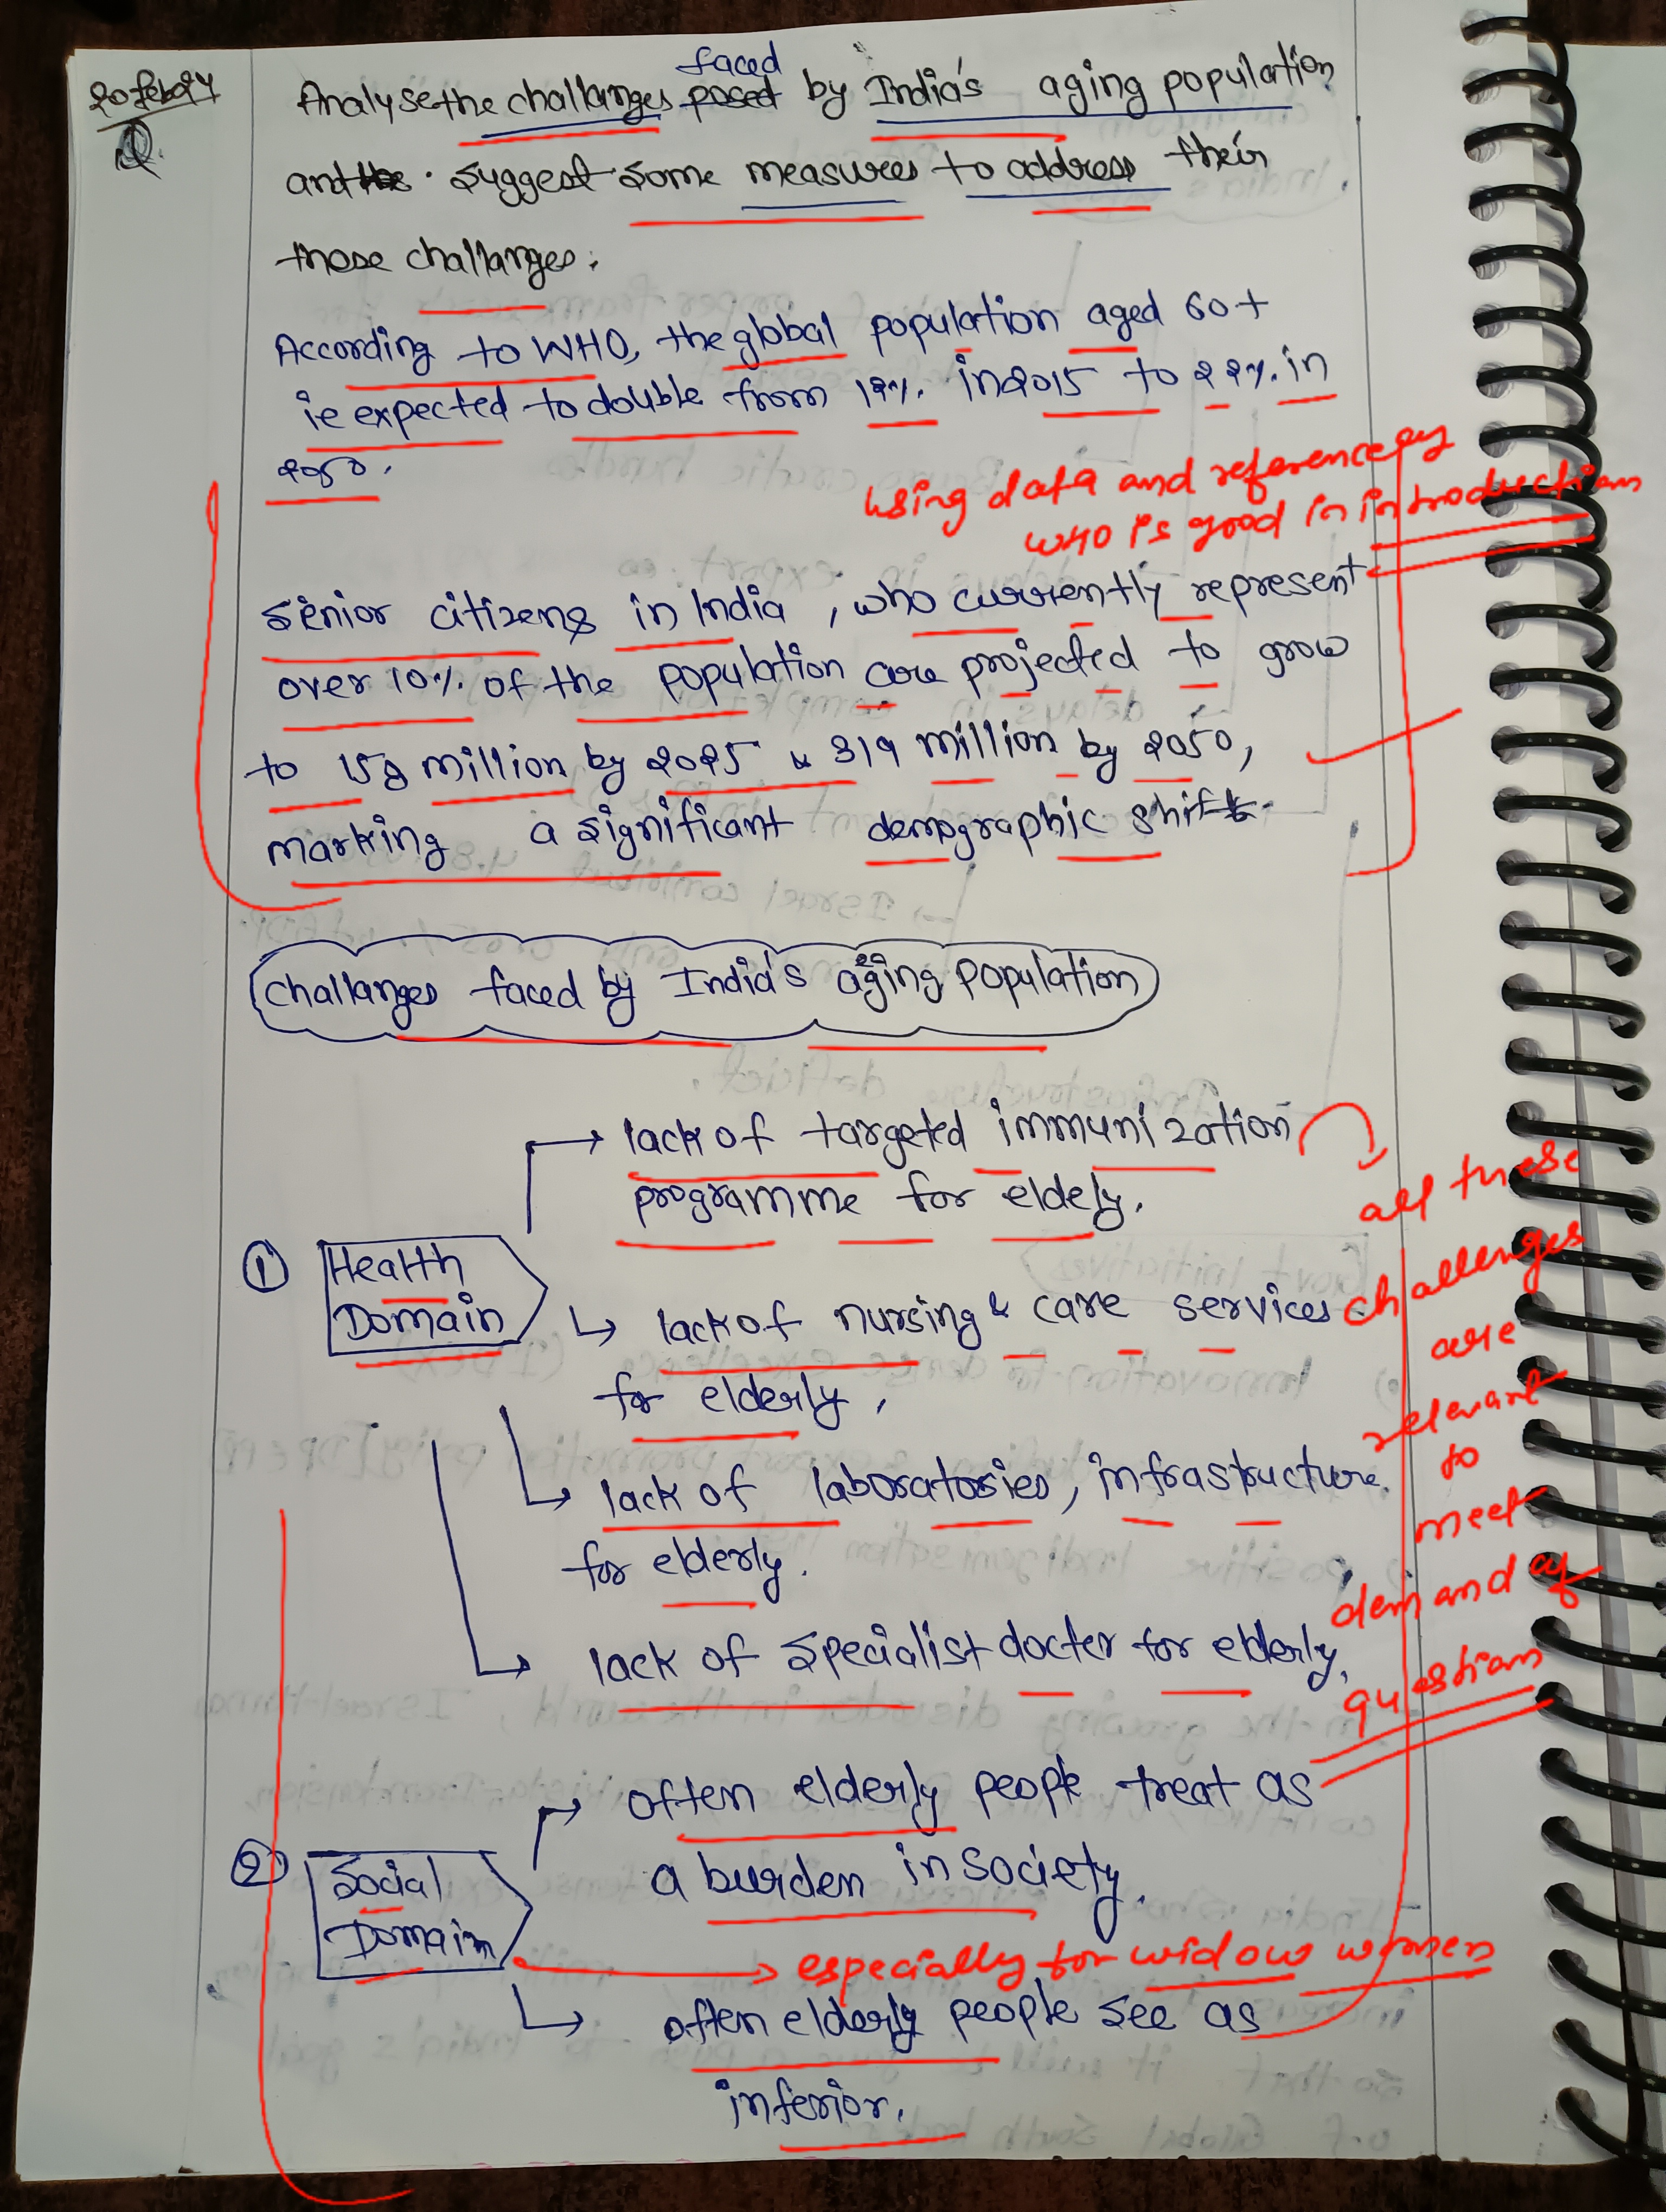 20 Feb 24
Q.
faced
Analyse the challanges posed by India's aging population
and the . suggest some measures to address their
these challanges.
According to WHO, the global population aged 60+
ie expected to double from 12%. in 2015 to 22%. in
2050.
using data and reference by
WHO is good in introduction
Senior citizens in India , who currently represent
over 10%. of the population are projected to grow
to 158 million by 2025 & 319 million by 2050,
marking a significant demographic shift.
Challanges faced by India's aging population
→ lack of targeted immunization
programme for eldely.
all these
① Health
Domain
challenges
↳ lack of nursing & care services
are
for elderly,
relevant
to
↳ lack of laboratories, infrastructure.
meet
for elderly.
demand of
↳ lack of specialist docter for elderly,
question
→ often elderly people treat as
a burden in society.
② Social
Domain
→ especially for widow women
↳ often elderly people see as
inferior.